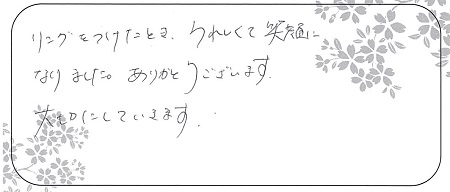 リングをつけたとき、うれしくて笑顔に
なりました。ありがとうございます。
大切にしていきます。